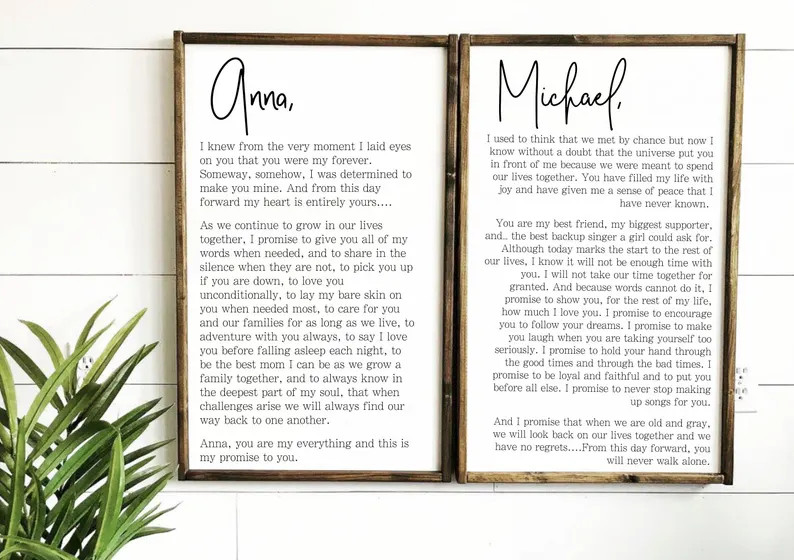 Anna,
I knew from the very moment I laid eyes
on you that you were my forever.
Someway, somehow, I was determined to
make you mine. And from this day
forward my heart is entirely yours....
As we continue to grow in our lives
together, I promise to give you all of my
words when needed, and to share in the
silence when they are not, to pick you up
if you are down, to love you
unconditionally, to lay my bare skin on
you when needed most, to care for you
and our families for as long as we live, to
adventure with you always, to say I love
you before falling asleep each night, to
be the best mom I can be as we grow a
family together, and to always know in
the deepest part of my soul, that when
challenges arise we will always find our
way back to one another.
Anna, you are my everything and this is
my promise to you.
Michael,
I used to think that we met by chance but now I
know without a doubt that the universe put you
in front of me because we were meant to spend
our lives together. You have filled my life with
joy and have given me a sense of peace that I
have never known.
You are my best friend, my biggest supporter,
and.. the best backup singer a girl could ask for.
Although today marks the start to the rest of
our lives, I know it will not be enough time with
you. I will not take our time together for
granted. And because words cannot do it, I
promise to show you, for the rest of my life,
how much I love you. I promise to encourage
you to follow your dreams. I promise to make
you laugh when you are taking yourself too
seriously. I promise to hold your hand through
the good times and through the bad times. I
promise to be loyal and faithful and to put you
before all else. I promise to never stop making
up songs for you.
And I promise that when we are old and gray,
we will look back on our lives together and we
have no regrets....From this day forward, you
will never walk alone.